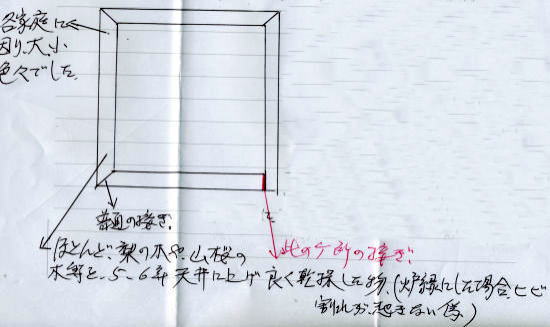 各家庭に
因り、大、小
色々でした。
普通の接ぎ.
此のヶ所の接ぎ.
ほとんど、梨の木や、山桜の
木等を、5、6年天井に上げ良く乾操した物.(炉縁にした場合、ヒビ
割れが起きない様)